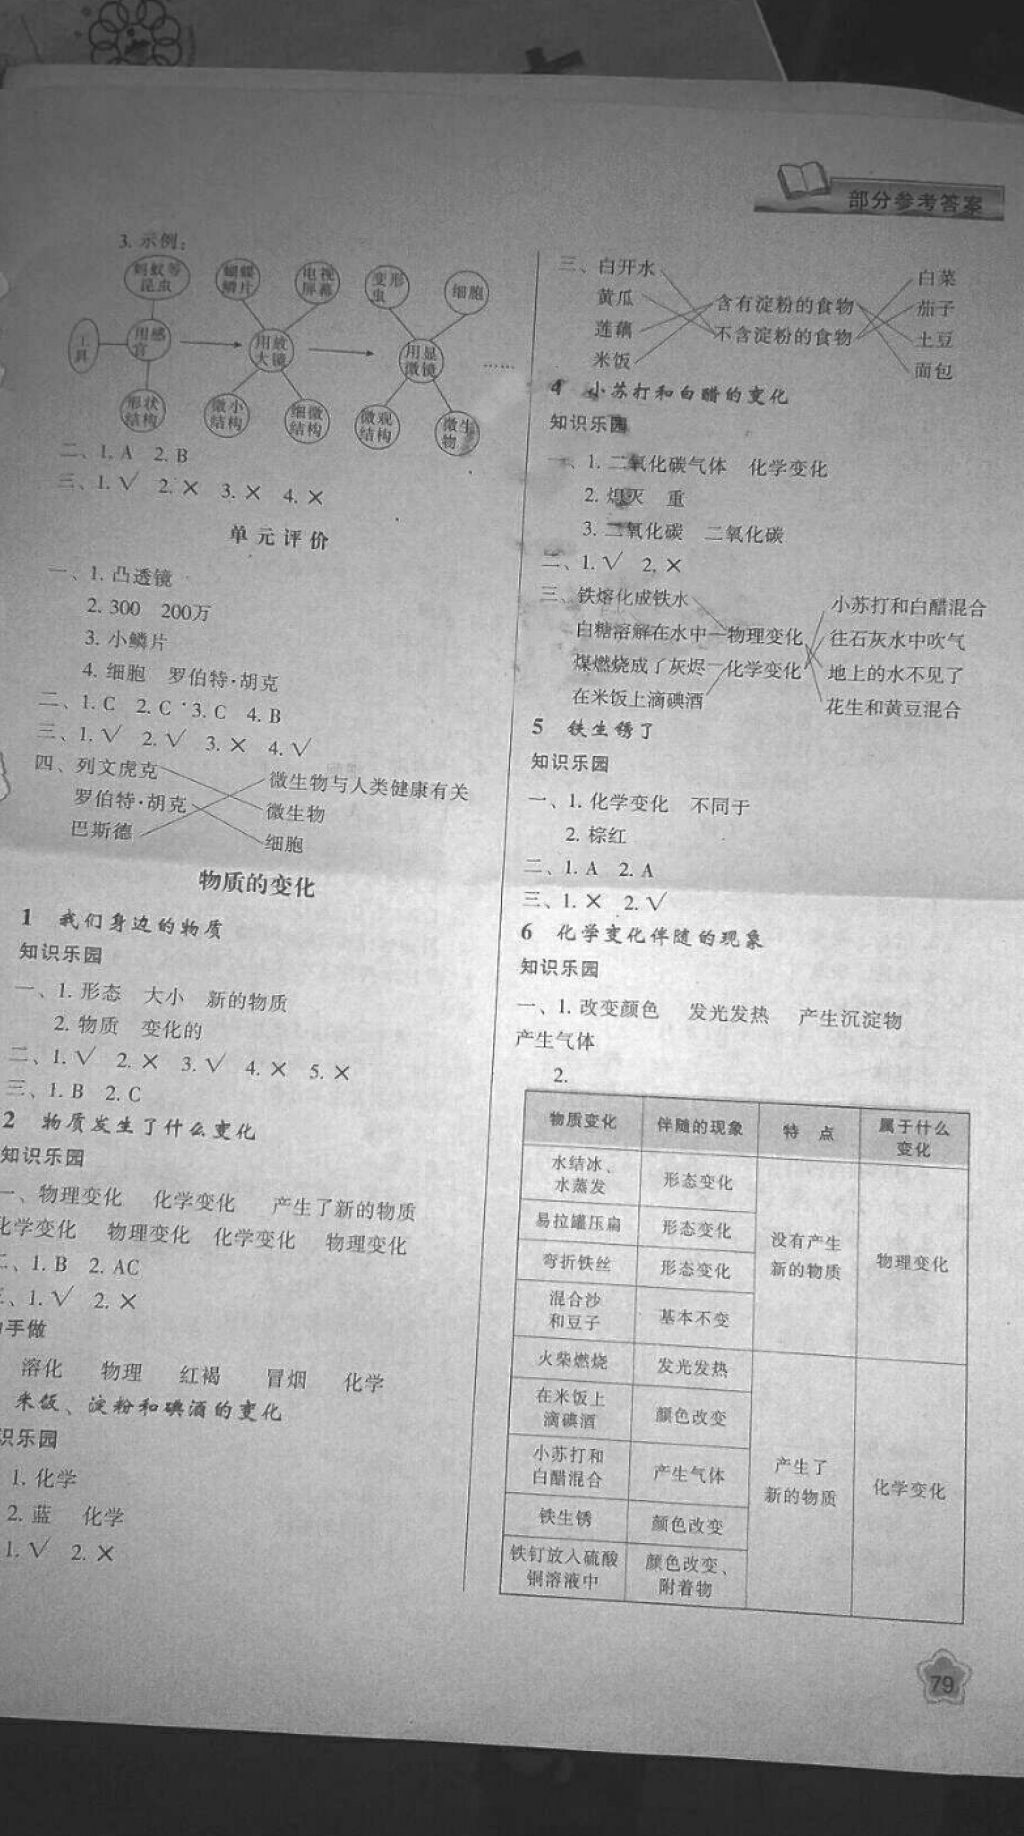 部分参考答案
3. 示例：
蚂蚁等昆虫 蝴蝶鳞片 电视屏幕 变形虫 细胞
工具 用感官 用放大镜 用显微镜 ……
形状结构 微小结构 细微结构 微观结构 微生物
二、1. A 2. B
三、1. √ 2. × 3. × 4. ×
单元评价
一、1. 凸透镜
2. 300 200万
3. 小鳞片
4. 细胞 罗伯特·胡克
二、1. C 2. C 3. C 4. B
三、1. √ 2. √ 3. × 4. √
四、列文虎克 微生物与人类健康有关
罗伯特·胡克 微生物
巴斯德 细胞
物质的变化
1 我们身边的物质
知识乐园
一、1. 形态 大小 新的物质
2. 物质 变化的
二、1. √ 2. × 3. √ 4. × 5. ×
三、1. B 2. C
2 物质发生了什么变化
知识乐园
一、物理变化 化学变化 产生了新的物质
化学变化 物理变化 化学变化 物理变化
二、1. B 2. AC
三、1. √ 2. ×
手做
溶化 物理 红褐 冒烟 化学
米饭、淀粉和碘酒的变化
识乐园
1. 化学
2. 蓝 化学
1. √ 2. ×
三、白开水 白菜
黄瓜 含有淀粉的食物 茄子
莲藕 不含淀粉的食物 土豆
米饭 面包
4 小苏打和白醋的变化
知识乐园
一、1. 二氧化碳气体 化学变化
2. 熄灭 重
3. 二氧化碳 二氧化碳
二、1. √ 2. ×
三、铁熔化成铁水 小苏打和白醋混合
白糖溶解在水中 物理变化 往石灰水中吹气
煤燃烧成了灰烬 化学变化 地上的水不见了
在米饭上滴碘酒 花生和黄豆混合
5 铁生锈了
知识乐园
一、1. 化学变化 不同于
2. 棕红
二、1. A 2. A
三、1. × 2. √
6 化学变化伴随的现象
知识乐园
一、1. 改变颜色 发光发热 产生沉淀物
产生气体
2.
物质变化 伴随的现象 特 点 属于什么变化
水结冰、水蒸发 形态变化 没有产生新的物质 物理变化
易拉罐压扁 形态变化
弯折铁丝 形态变化
混合沙和豆子 基本不变
火柴燃烧 发光发热 产生了新的物质 化学变化
在米饭上滴碘酒 颜色改变
小苏打和白醋混合 产生气体
铁生锈 颜色改变
铁钉放入硫酸铜溶液中 颜色改变、附着物
79